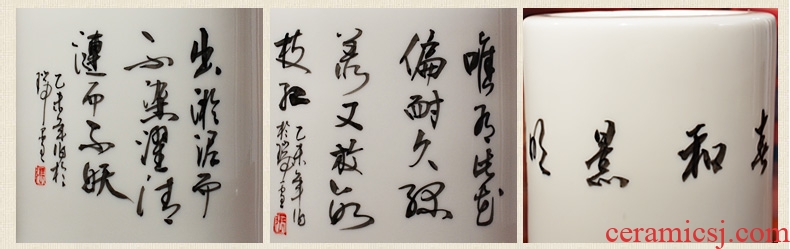 出淤泥而
不染濯清
漣而不妖
乙未年
唯有此花
偏耐久綠
叢又放數
枝紅
乙未年
春和景明
ceramicsj.com